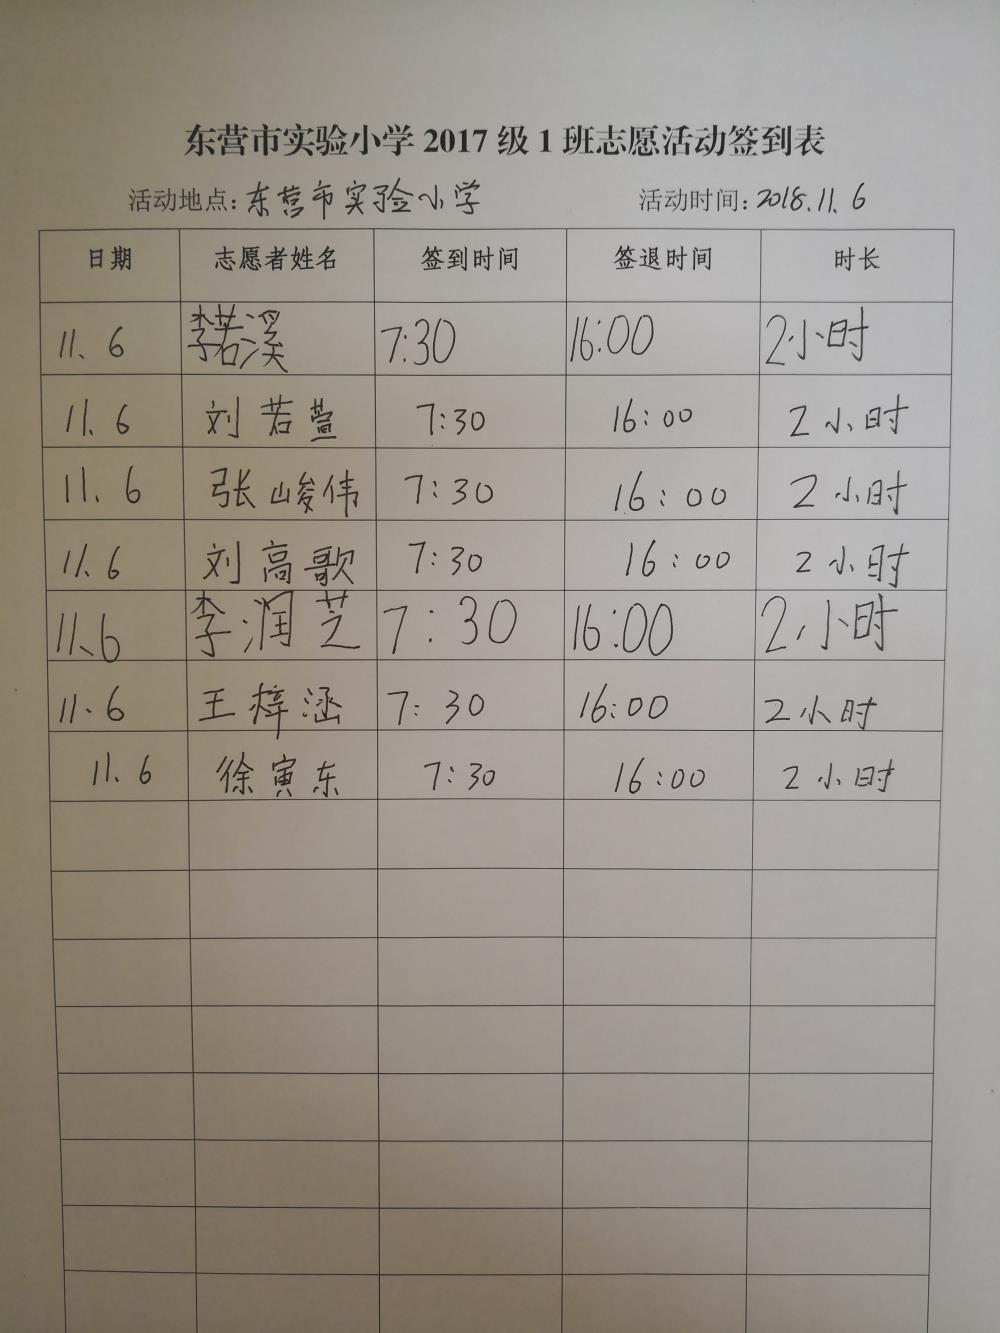 东营市实验小学2017级1班志愿活动签到表
活动地点:东营市实验小学 活动时间:2018.11.6
日期 志愿者姓名 签到时间 签退时间 时长
11.6 李若溪 7:30 16:00 2小时
11.6 刘若萱 7:30 16:00 2小时
11.6 张峻伟 7:30 16:00 2小时
11.6 刘高歌 7:30 16:00 2小时
11.6 李润芝 7:30 16:00 2小时
11.6 王梓涵 7:30 16:00 2小时
11.6 徐寅东 7:30 16:00 2小时